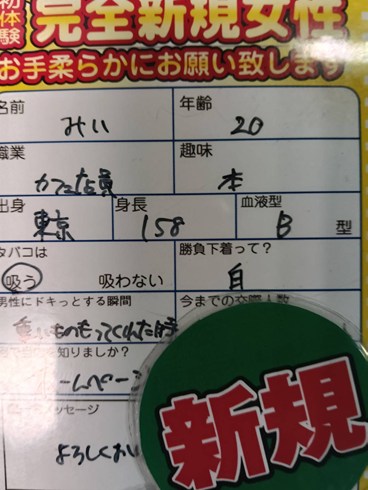 初体験
完全新規女性
お手柔らかにお願い致します
名前
みい
年齢
20
職業
カフェ店員
趣味
本
出身
東京
身長
158
血液型
B 型
タバコは
吸う 吸わない
勝負下着って?
白
男性にドキっとする瞬間
重いものもってくれた時
今までの交際人数
知りましたか?
ームペーシ
ッセージ
よろしくおい
新規